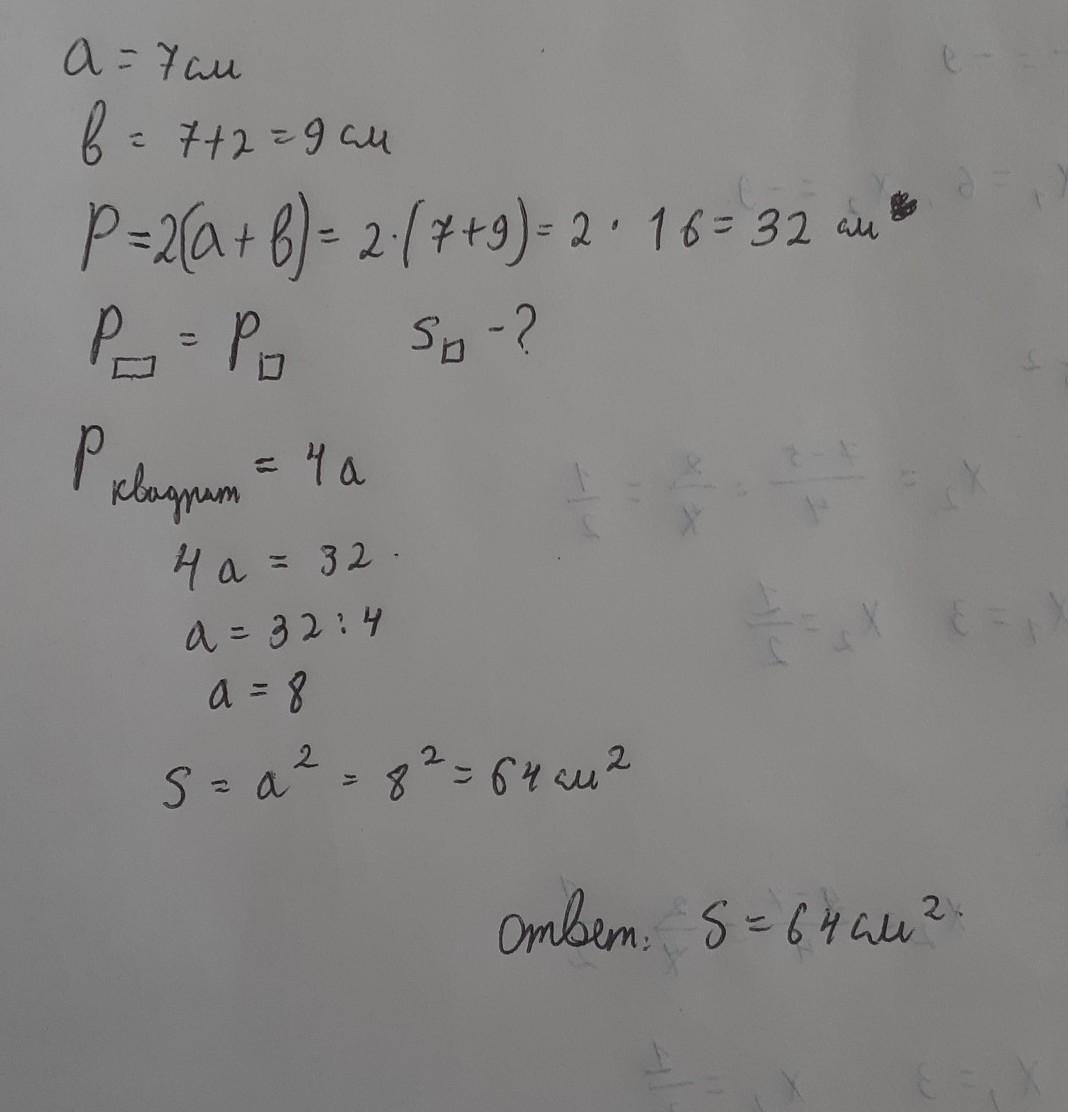 a = 7см
в = 7+2 = 9 см
P = 2(a + в) = 2·(7+9) = 2 · 16 = 32 см
P▭ = P□ S□ - ?
P квадрат = 4a
4a = 32
a = 32 : 4
a = 8
S = a² = 8² = 64 см²
ответ: S = 64 см².